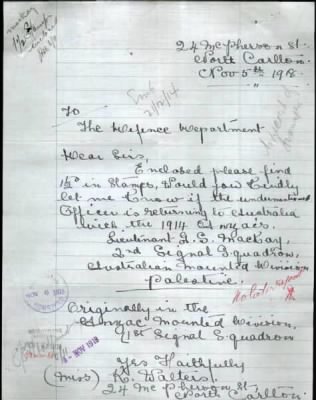 24 McPherson St.
North Carlton
Nov 5th 1918
To
The Defence Department
Dear Sirs,
Enclosed please find
1½ᵈ in Stamps, Would you Kindly
let me Know if the undermentioned
Officer is returning to Australia
with the 1914 Anzacs.
Lieutenant G. S. MacKay,
2nd Signal Squadron,
Australian Mounted Division,
Palestine.
Originally in the
Anzac Mounted Division,
1st Signal Squadron
Yrs Faithfully
(Miss) K. Walters.
24 McPherson St
North Carlton
NOV 6 1918
NOV 1918